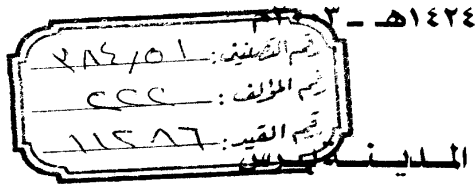 ١٤٢٤هـ – ٢٠٠٣م
رقم التصنيف: ٣٨٤,٥١
رقم المؤلف: ٢٢٢
رقم القيد: ١١٢٨٦
المدينة برس